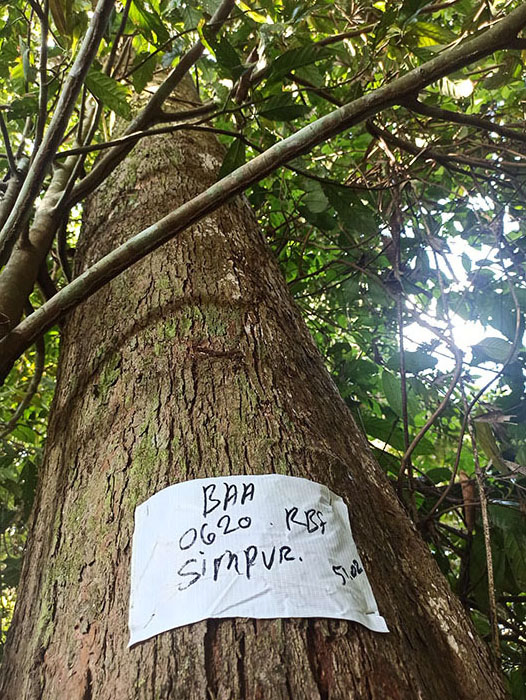 BAA
0620 . RBS
SimPUR.
51.02